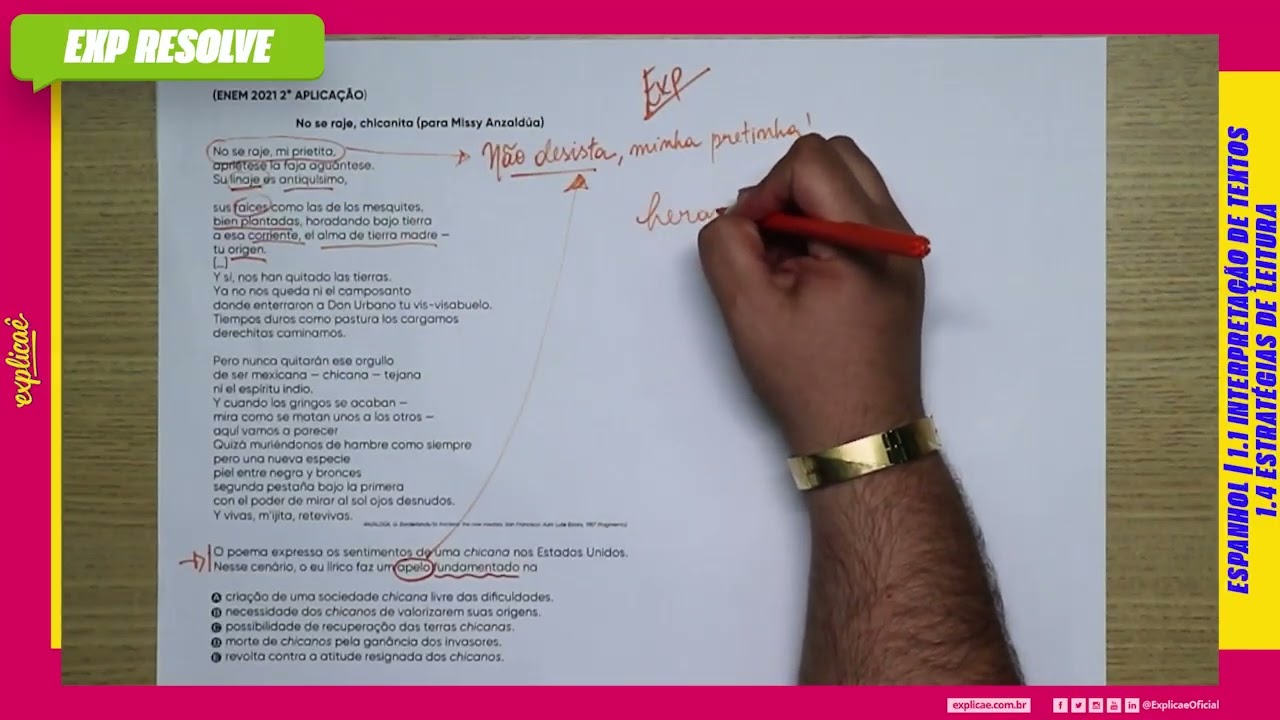 EXP RESOLVE
(ENEM 2021 2ª APLICAÇÃO)
Exp
No se raje, chicanita (para Missy Anzaldúa)
No se raje, mi prietita,
apriétese la faja aguántese.
Su linaje es antiquísimo,
Não desista, minha pretinha!
sus raíces como las de los mesquites,
bien plantadas, horadando bajo tierra
a esa corriente, el alma de tierra madre —
tu origen.
hera
[...]
Y sí, nos han quitado las tierras.
Ya no nos queda ni el camposanto
donde enterraron a Don Urbano tu vis-visabuelo.
Tiempos duros como pastura los cargamos
derechitas caminamos.
Pero nunca quitarán ese orgullo
de ser mexicana — chicana — tejana
ni el espíritu indio.
Y cuando los gringos se acaban —
mira como se matan unos a los otros —
aquí vamos a parecer
Quizá muriéndonos de hambre como siempre
pero una nueva especie
piel entre negra y bronces
segunda pestaña bajo la primera
con el poder de mirar al sol ojos desnudos.
Y vivas, m'ijita, retevivas.
O poema expressa os sentimentos de uma chicana nos Estados Unidos.
Nesse cenário, o eu lírico faz um apelo fundamentado na
A criação de uma sociedade chicana livre das dificuldades.
B necessidade dos chicanos de valorizarem suas origens.
C possibilidade de recuperação das terras chicanas.
D morte de chicanos pela ganância dos invasores.
E revolta contra a atitude resignada dos chicanos.
explicaê
ESPANHOL | 1.1 INTERPRETAÇÃO DE TEXTOS
1.4 ESTRATÉGIAS DE LEITURA
explicae.com.br
@ExplicaeOficial